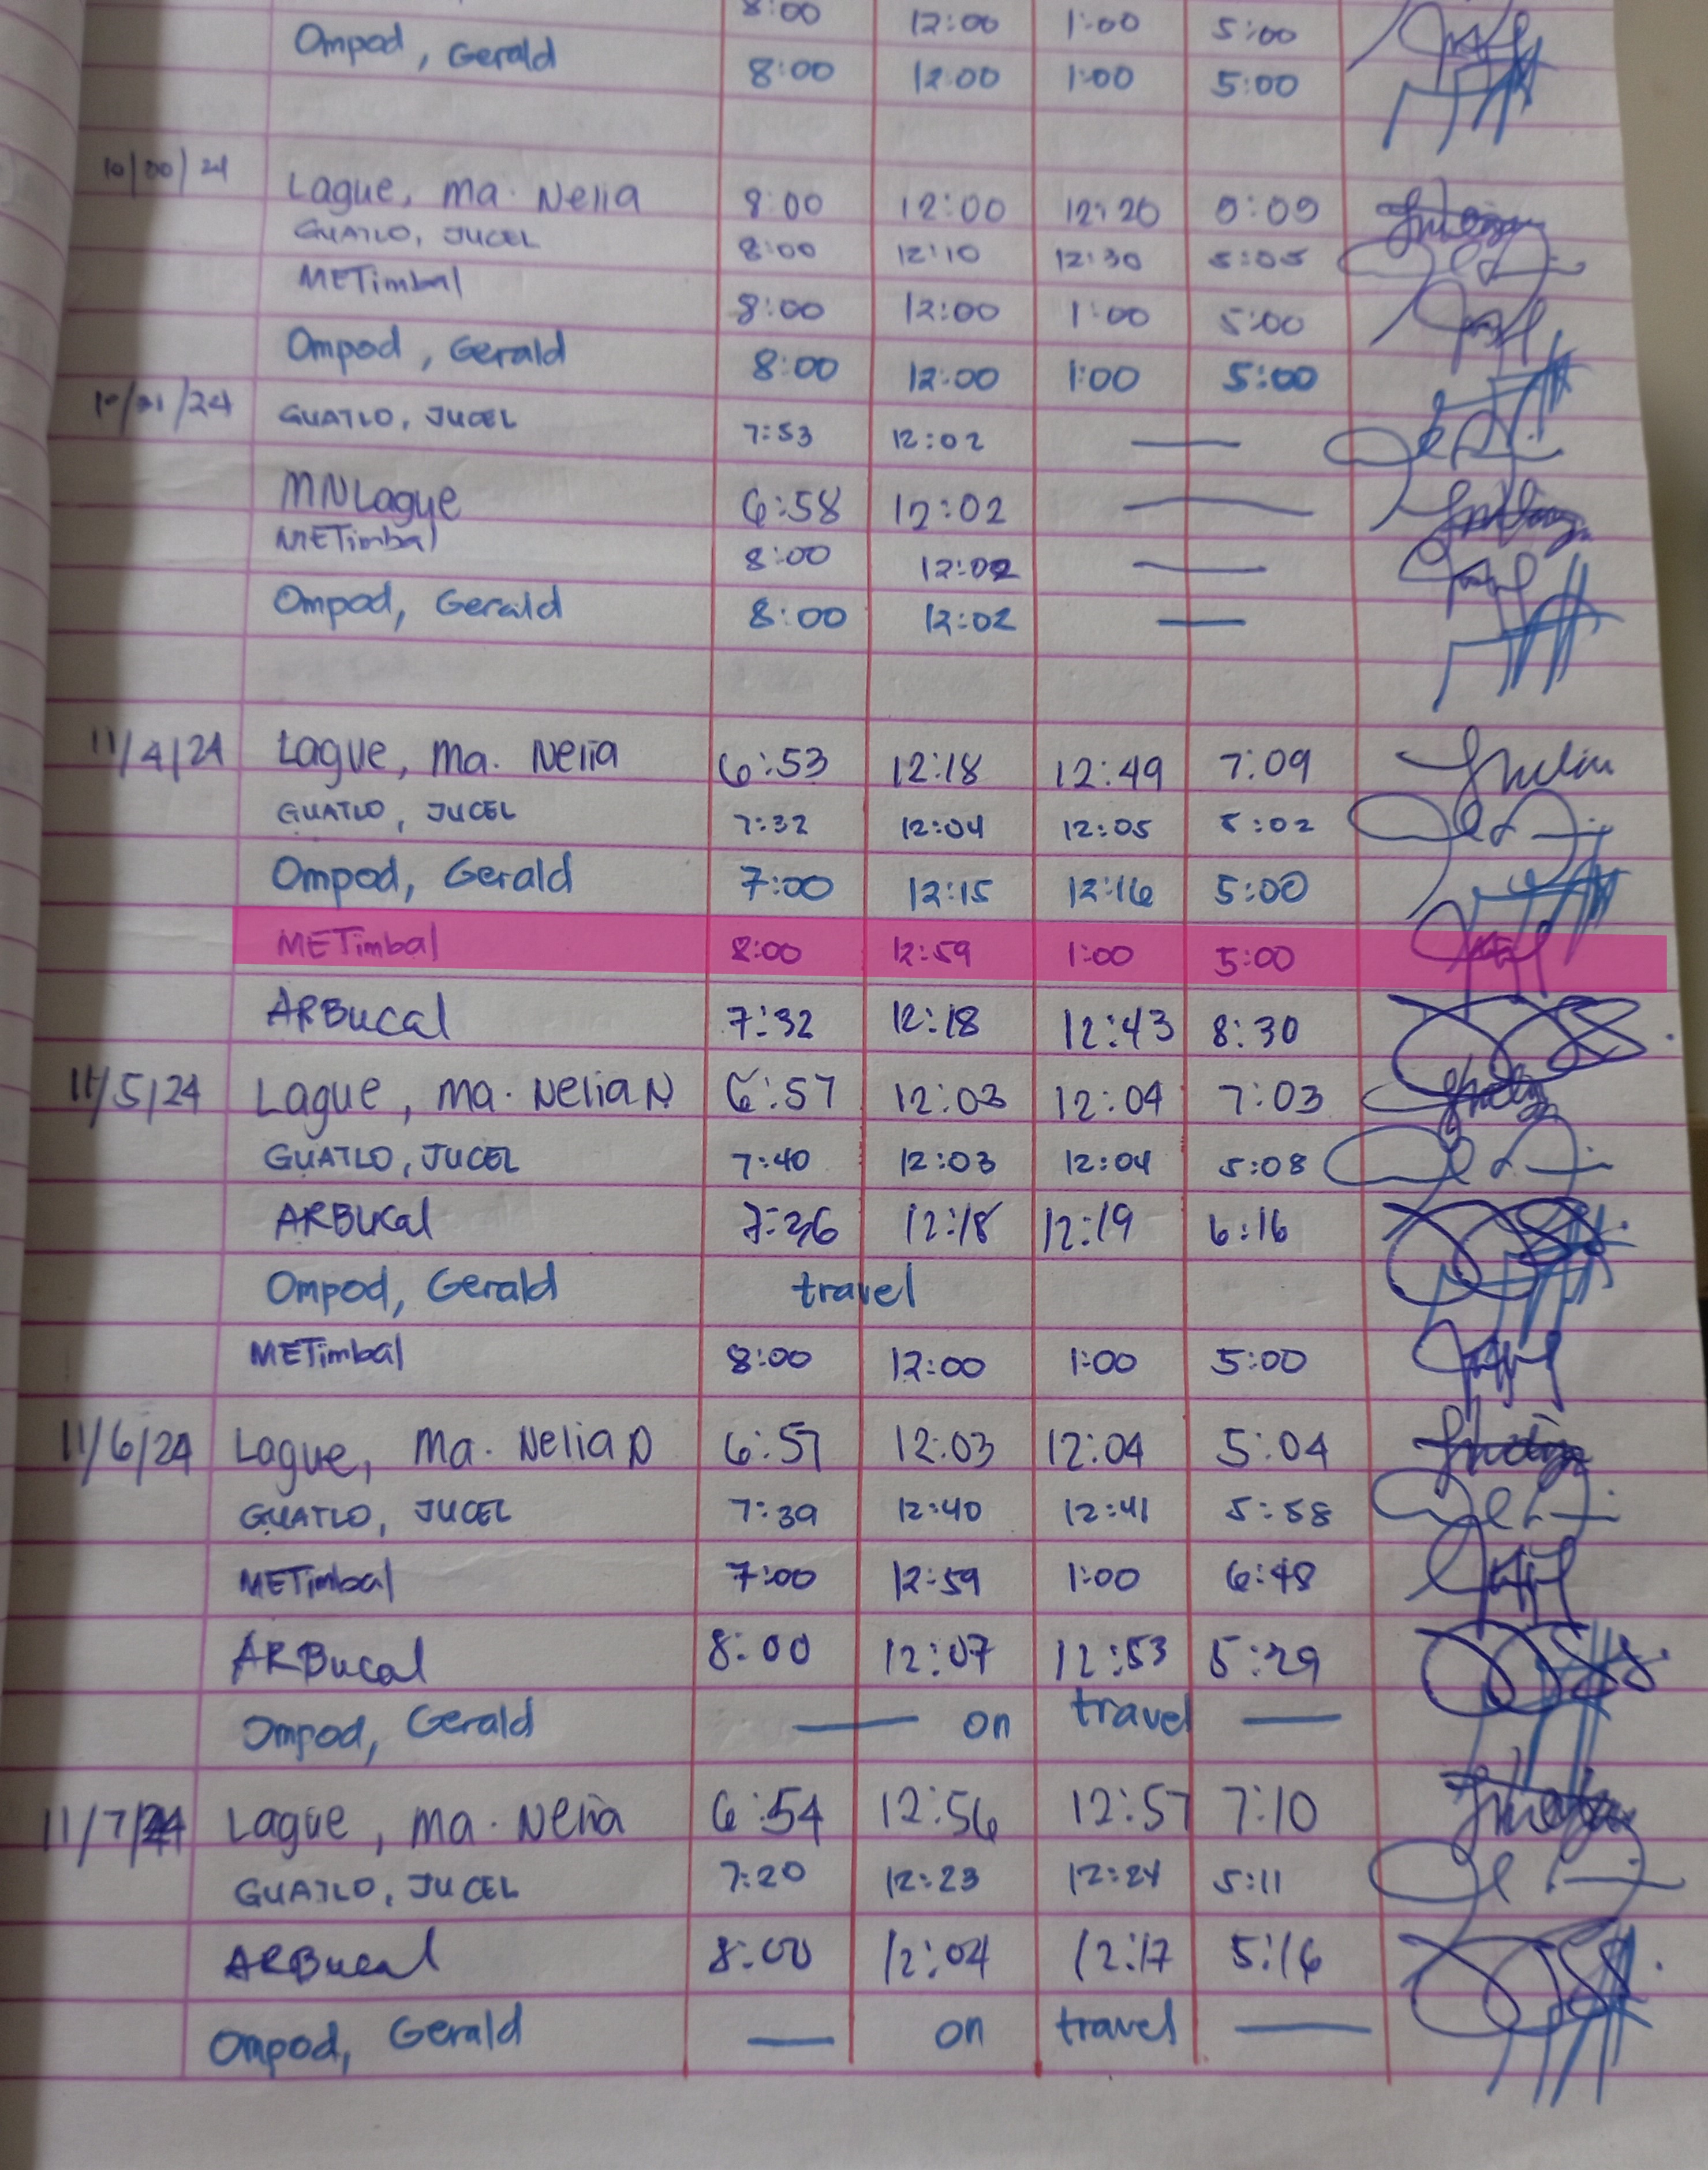 8:00 12:00 1:00 5:00
Ompod, Gerald 8:00 12:00 1:00 5:00
10/30/24 Lague, Ma. Nelia 8:00 12:00 12:20 5:09
GUATLO, JUCEL 8:00 12:10 12:30 5:05
METimbal 8:00 12:00 1:00 5:00
Ompod, Gerald 8:00 12:00 1:00 5:00
10/31/24 GUATLO, JUCEL 7:53 12:02 —
MNLague 6:58 12:02 —
METimbal 8:00 12:02 —
Ompod, Gerald 8:00 12:02 —
11/4/24 Lague, Ma. Nelia 6:53 12:18 12:49 7:09
GUATLO, JUCEL 7:32 12:04 12:05 5:02
Ompod, Gerald 7:00 12:15 12:16 5:00
METimbal 8:00 12:59 1:00 5:00
ARBucal 7:32 12:18 12:43 8:30
11/5/24 Lague, Ma. Nelia N 6:57 12:03 12:04 7:03
GUATLO, JUCEL 7:40 12:03 12:04 5:08
ARBucal 7:36 12:18 12:19 6:16
Ompod, Gerald travel
METimbal 8:00 12:00 1:00 5:00
11/6/24 Lague, Ma. Nelia N 6:57 12:03 12:04 5:04
GUATLO, JUCEL 7:39 12:40 12:41 5:58
METimbal 7:00 12:59 1:00 6:48
ARBucal 8:00 12:07 12:53 5:29
Ompod, Gerald — on travel —
11/7/24 Lague, Ma. Nelia 6:54 12:56 12:57 7:10
GUATLO, JUCEL 7:20 12:23 12:24 5:11
ARBucal 8:00 12:04 12:17 5:16
Ompod, Gerald — on travel —